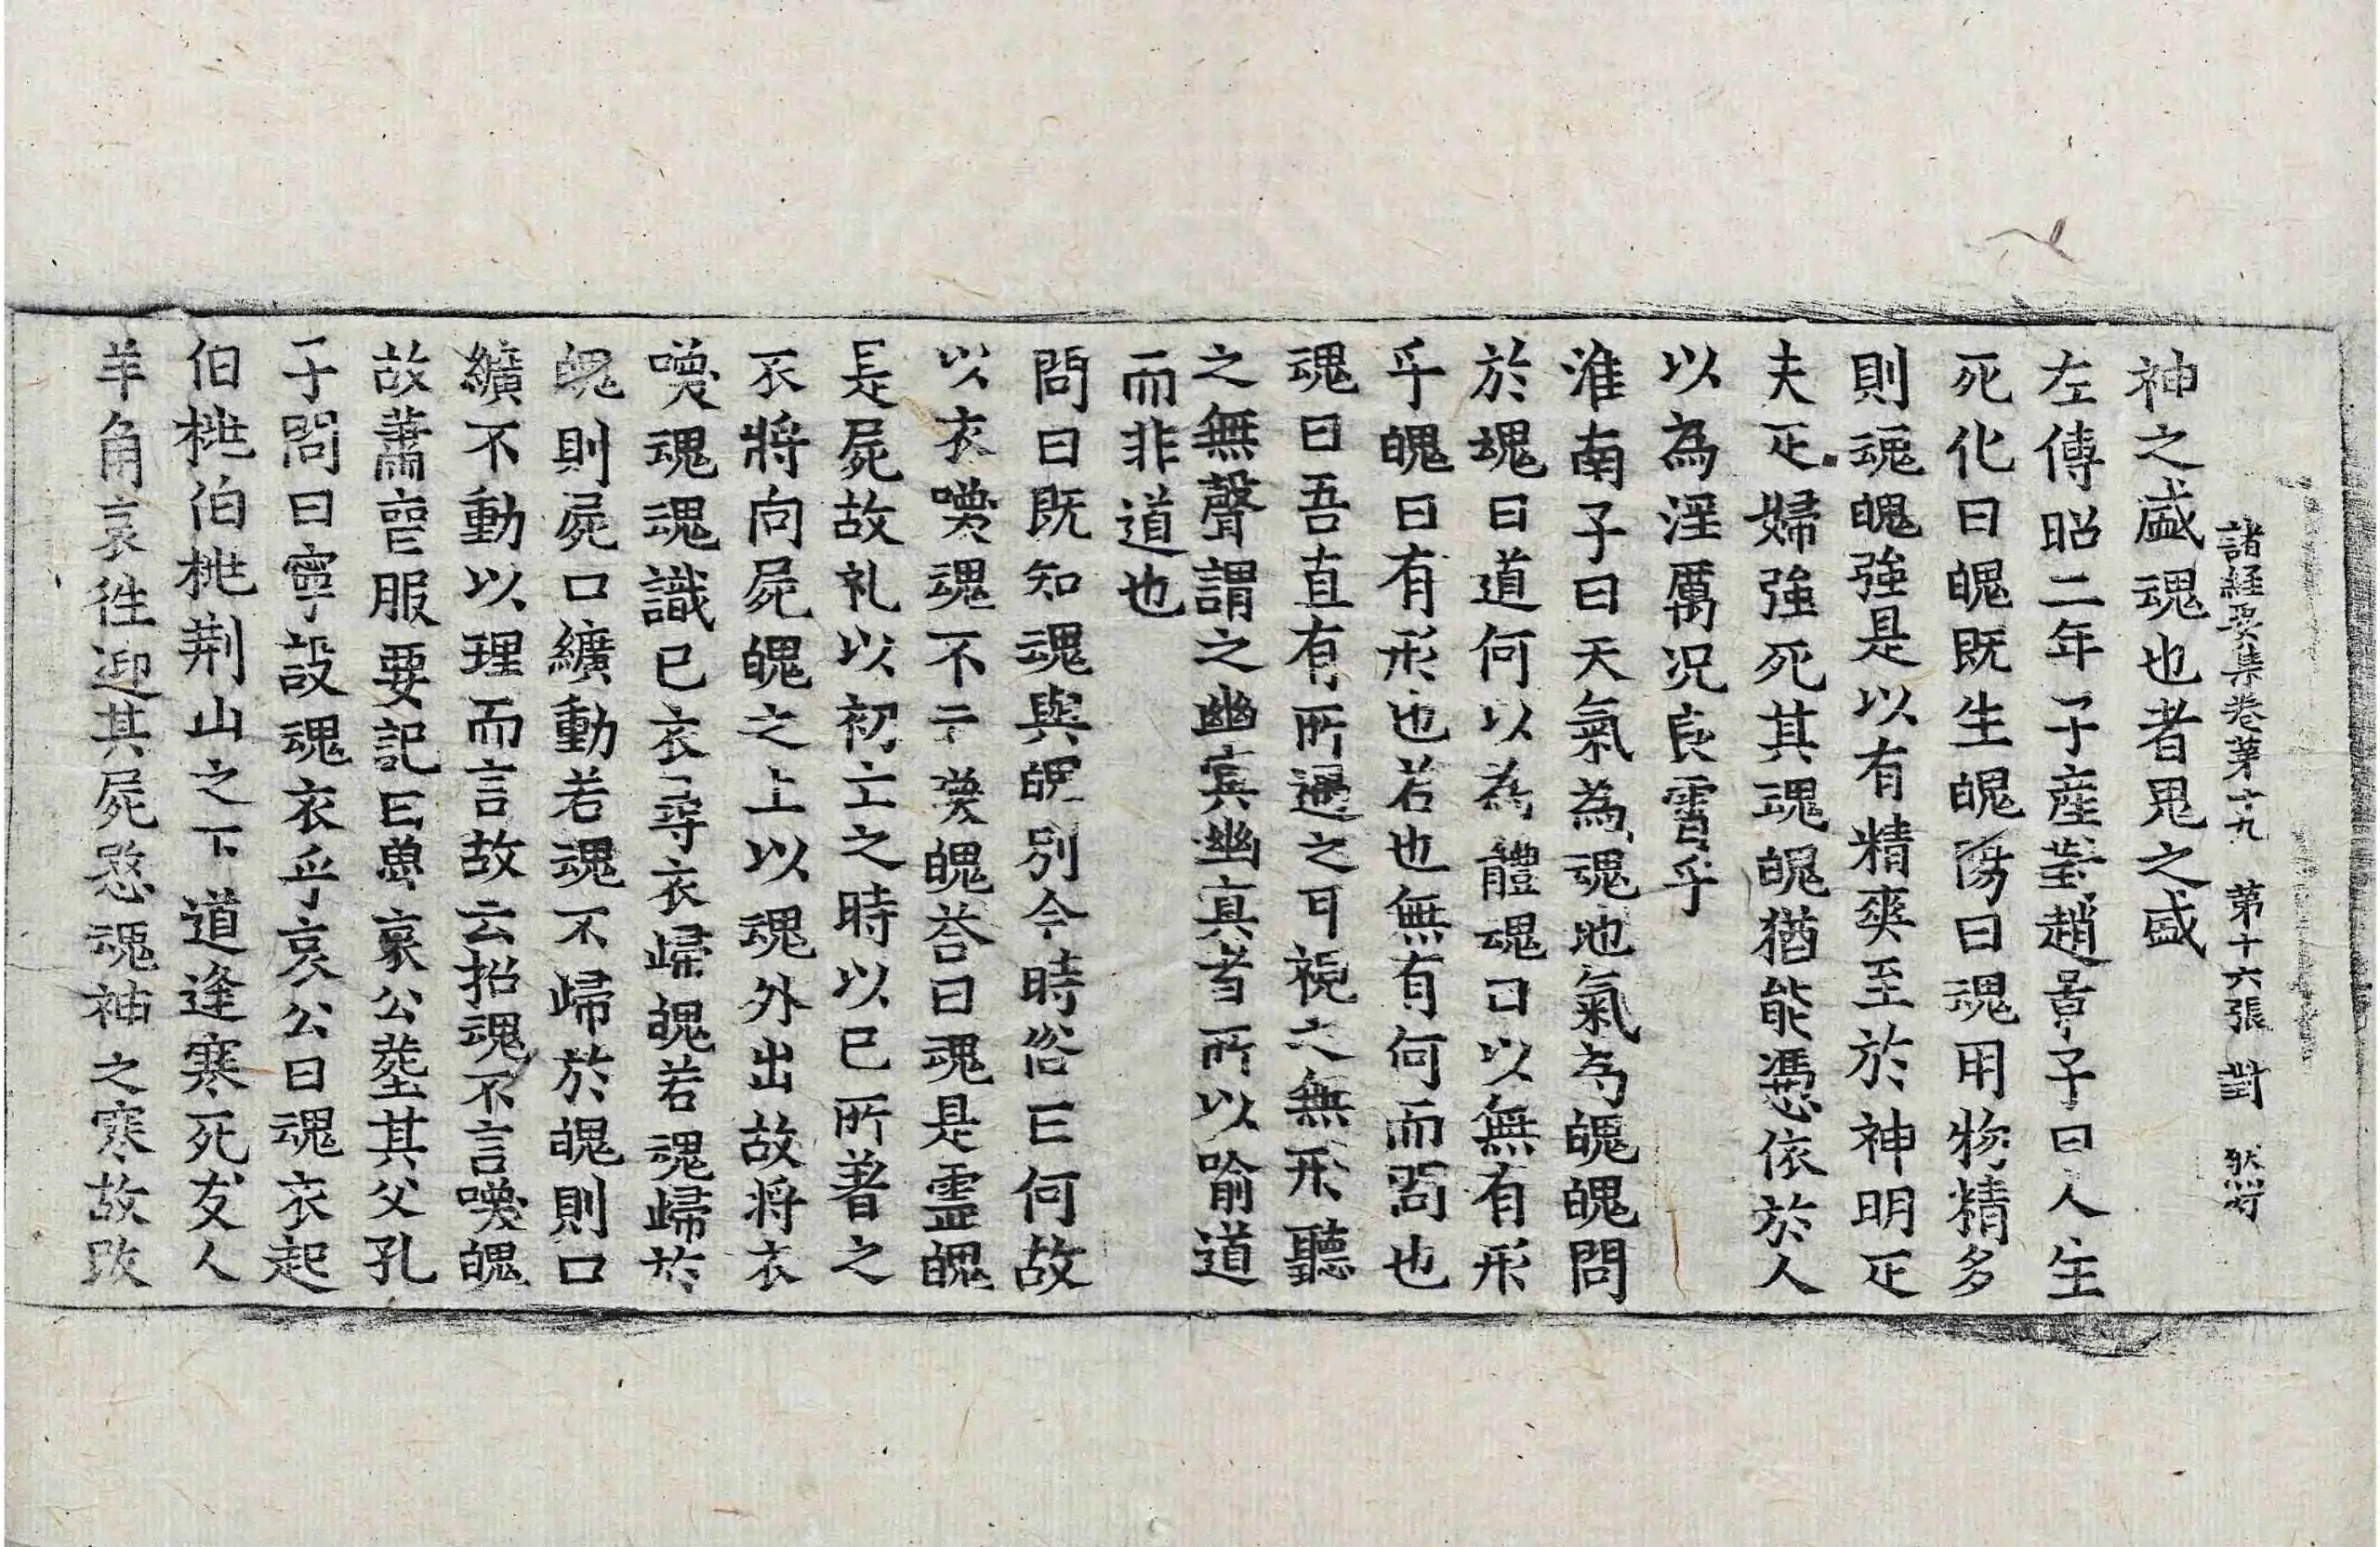 諸經要集卷第十九 第十六張 對
神之盛魂也者鬼之盛
左傳昭二年子產對趙景子曰人生
死化曰魄既生魄陽曰魂用物精多
則魂魄強是以有精爽至於神明疋
夫疋婦強死其魂魄猶能憑依於人
以為淫厲况良霄乎
淮南子曰天氣為魂地氣為魄魄問
於魂曰道何以為體魂曰以無有形
乎魄曰有形也若也無有何而問也
魂曰吾直有所遇之耳視之無形聽
之無聲謂之幽冥幽冥者所以喻道
而非道也
問曰既知魂與魄別今時俗曰何故
以衣喚魂不云喚魄荅曰魂是靈魄
是屍故礼以初亡之時以已所著之
衣將向屍魄之上以魂外出故將衣
喚魂魂識已衣尋衣歸魄若魂歸於
魄則屍口纊動若魂不歸於魄則口
纊不動以理而言故云招魂不言喚魄
故蕭喪服要記曰魯哀公葬其父孔
子問曰寧設魂衣乎哀公曰魂衣起
伯桃伯桃荆山之下道逢寒死友人
羊角哀徃迎其屍愍魂神之寒故改